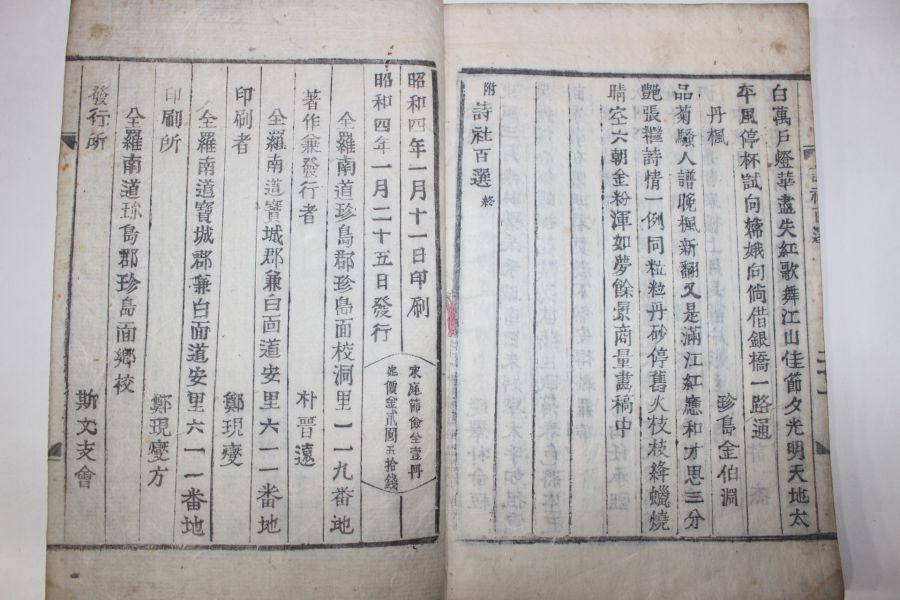 白萬戶燈華盡失紅歌舞江山佳節夕光明天地太
平風停杯試向嫦娥向倘借銀橋一路通
丹楓
珍島金伯淵
品菊騷人譜晚楓新翻又是滿江紅應和才思三分
艶張糶詩情一例同粒粒丹砂停舊火枝枝絳蠟燒
晴空六朝金粉渾如夢餘景商量畵稿中
附
詩社百選
終
昭和四年一月十一日印刷
昭和四年一月二十五日發行
家庭節儉全壹冊
定價金貳圓五拾錢
全羅南道珍島郡珍島面校洞里一一九番地
著作兼發行者
朴晋遠
全羅南道寶城郡兼白面道安里六一一番地
印刷者
鄭現燮
全羅南道寶城郡兼白面道安里六一一番地
印刷所
鄭現燮方
全羅南道珍島郡珍島面鄕校
發行所
斯文支會